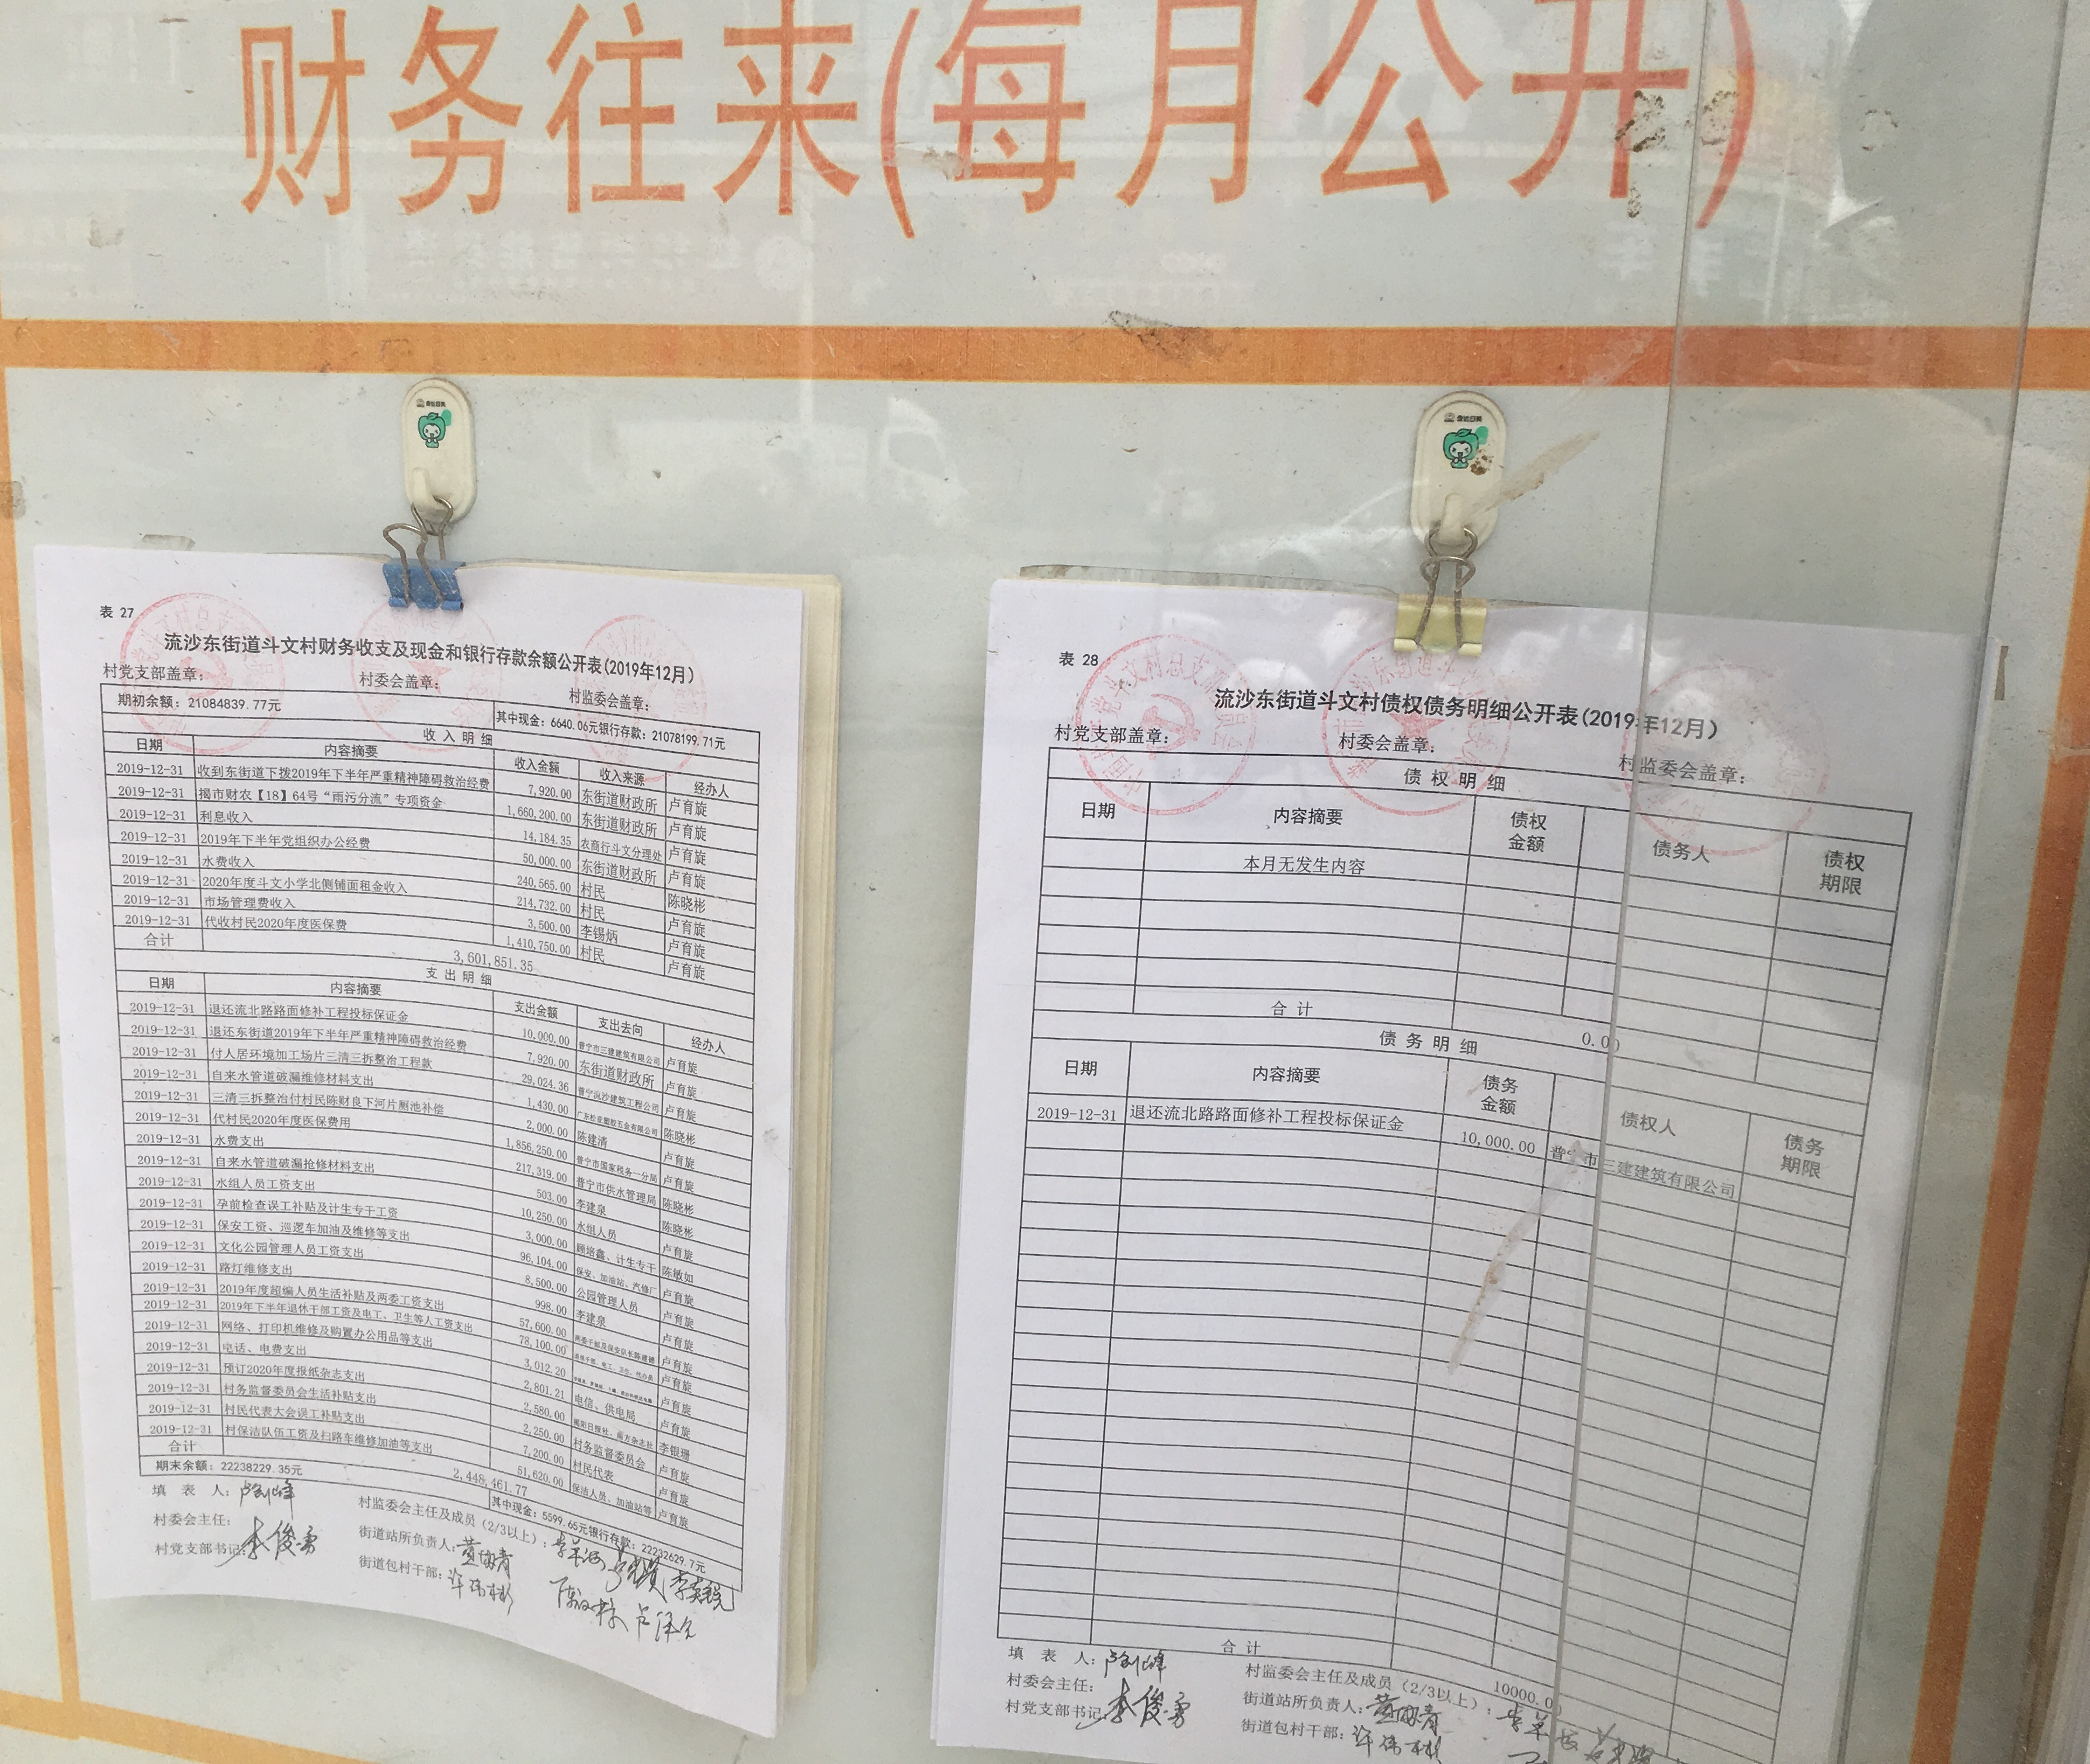 财务往来(每月公开)
表 27
流沙东街道斗文村财务收支及现金和银行存款余额公开表(2019年12月)
村党支部盖章: 村委会盖章: 村监委会盖章:
期初余额: 21084839.77元 其中现金: 6640.06元银行存款: 21078199.71元
收 入 明 细
日期 内容摘要 收入金额 收入来源 经办人
2019-12-31 收到东街道下拨2019年下半年严重精神障碍救治经费 7,920.00 东街道财政所 卢育旋
2019-12-31 揭市财农【18】64号“雨污分流”专项资金 1,660,200.00 东街道财政所 卢育旋
2019-12-31 利息收入 14,184.35 农商行斗文分理处 卢育旋
2019-12-31 2019年下半年党组织办公经费 50,000.00 东街道财政所 卢育旋
2019-12-31 水费收入 240,565.00 村民 陈晓彬
2019-12-31 2020年度斗文小学北侧铺面租金收入 214,732.00 村民 卢育旋
2019-12-31 市场管理费收入 3,500.00 李锡炳 卢育旋
2019-12-31 代收村民2020年度医保费 1,410,750.00 村民 卢育旋
合计 3,601,851.35
支 出 明 细
日期 内容摘要 支出金额 支出去向 经办人
2019-12-31 退还流北路路面修补工程投标保证金 10,000.00 普宁市三建建筑有限公司 卢育旋
2019-12-31 退还东街道2019年下半年严重精神障碍救治经费 7,920.00 东街道财政所 卢育旋
2019-12-31 付人居环境加工场片三清三拆整治工程款 29,024.36 普宁流沙建筑工程公司 卢育旋
2019-12-31 自来水管道破漏维修材料支出 1,430.00 陈晓彬
2019-12-31 三清三拆整治付村民陈财良下河片厕池补偿 2,000.00 陈建清 卢育旋
2019-12-31 代村民2020年度医保费用 1,856,250.00 普宁市国家税务一分局 卢育旋
2019-12-31 水费支出 217,319.00 普宁市供水管理局 陈晓彬
2019-12-31 自来水管道破漏抢修材料支出 503.00 李建泉 陈晓彬
2019-12-31 水组人员工资支出 10,250.00 水组人员 卢育旋
2019-12-31 孕前检查误工补贴及计生专干工资 3,000.00 顾培鑫、计生专干 陈敏如
2019-12-31 保安工资、巡逻车加油及维修等支出 96,104.00 保安、加油站、汽修厂 卢育旋
2019-12-31 文化公园管理人员工资支出 8,500.00 公园管理人员 卢育旋
2019-12-31 路灯维修支出 998.00 李建泉 卢育旋
2019-12-31 2019年度超编人员生活补贴及两委工资支出 57,600.00 卢育旋
2019-12-31 2019年下半年退休干部工资及电工、卫生等人工资支出 78,100.00 卢育旋
2019-12-31 网络、打印机维修及购置办公用品等支出 3,012.20 卢育旋
2019-12-31 电话、电费支出 2,801.21 电信、供电局 卢育旋
2019-12-31 预订2020年度报纸杂志支出 2,580.00 揭阳日报社、南方杂志社 李银珊
2019-12-31 村务监督委员会生活补贴支出 2,250.00 村务监督委员会 卢育旋
2019-12-31 村民代表大会误工补贴支出 7,200.00 村民代表 卢育旋
2019-12-31 村保洁队伍工资及扫路车维修加油等支出 51,620.00 保洁人员、加油站等 卢育旋
合计 2,448,461.77
期末余额: 22238229.35元 其中现金: 5599.65元银行存款: 22232629.7元
填 表 人:
村监委会主任及成员(2/3以上):
村委会主任: 街道站所负责人:
村党支部书记: 李俊勇 街道包村干部:
表 28
流沙东街道斗文村债权债务明细公开表(2019年12月)
村党支部盖章: 村委会盖章: 村监委会盖章:
债 权 明 细
日期 内容摘要 债权金额 债务人 债权期限
本月无发生内容
合 计 0.00
债 务 明 细
日期 内容摘要 债务金额 债权人 债务期限
2019-12-31 退还流北路路面修补工程投标保证金 10,000.00 普宁市三建建筑有限公司
合 计 10000.00
填 表 人:
村监委会主任及成员(2/3以上):
村委会主任: 街道站所负责人:
村党支部书记: 李俊勇 街道包村干部: